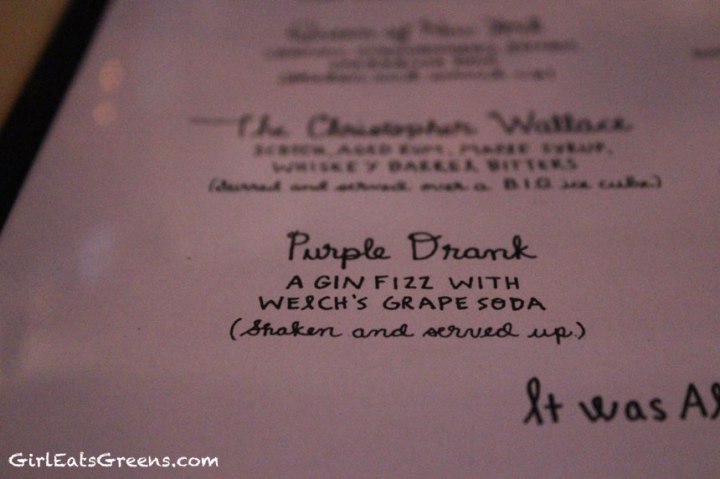 Queen of New York
(Shaken and served up)
The Christopher Wallace
SCOTCH, AGED RUM, MAPLE SYRUP,
WHISKEY BARREL BITTERS
(stirred and served over a B.I.G. ice cube)
Purple Drank
A GIN FIZZ WITH
WELCH'S GRAPE SODA
(Shaken and served up)
It was Al
GirlEatsGreens.com